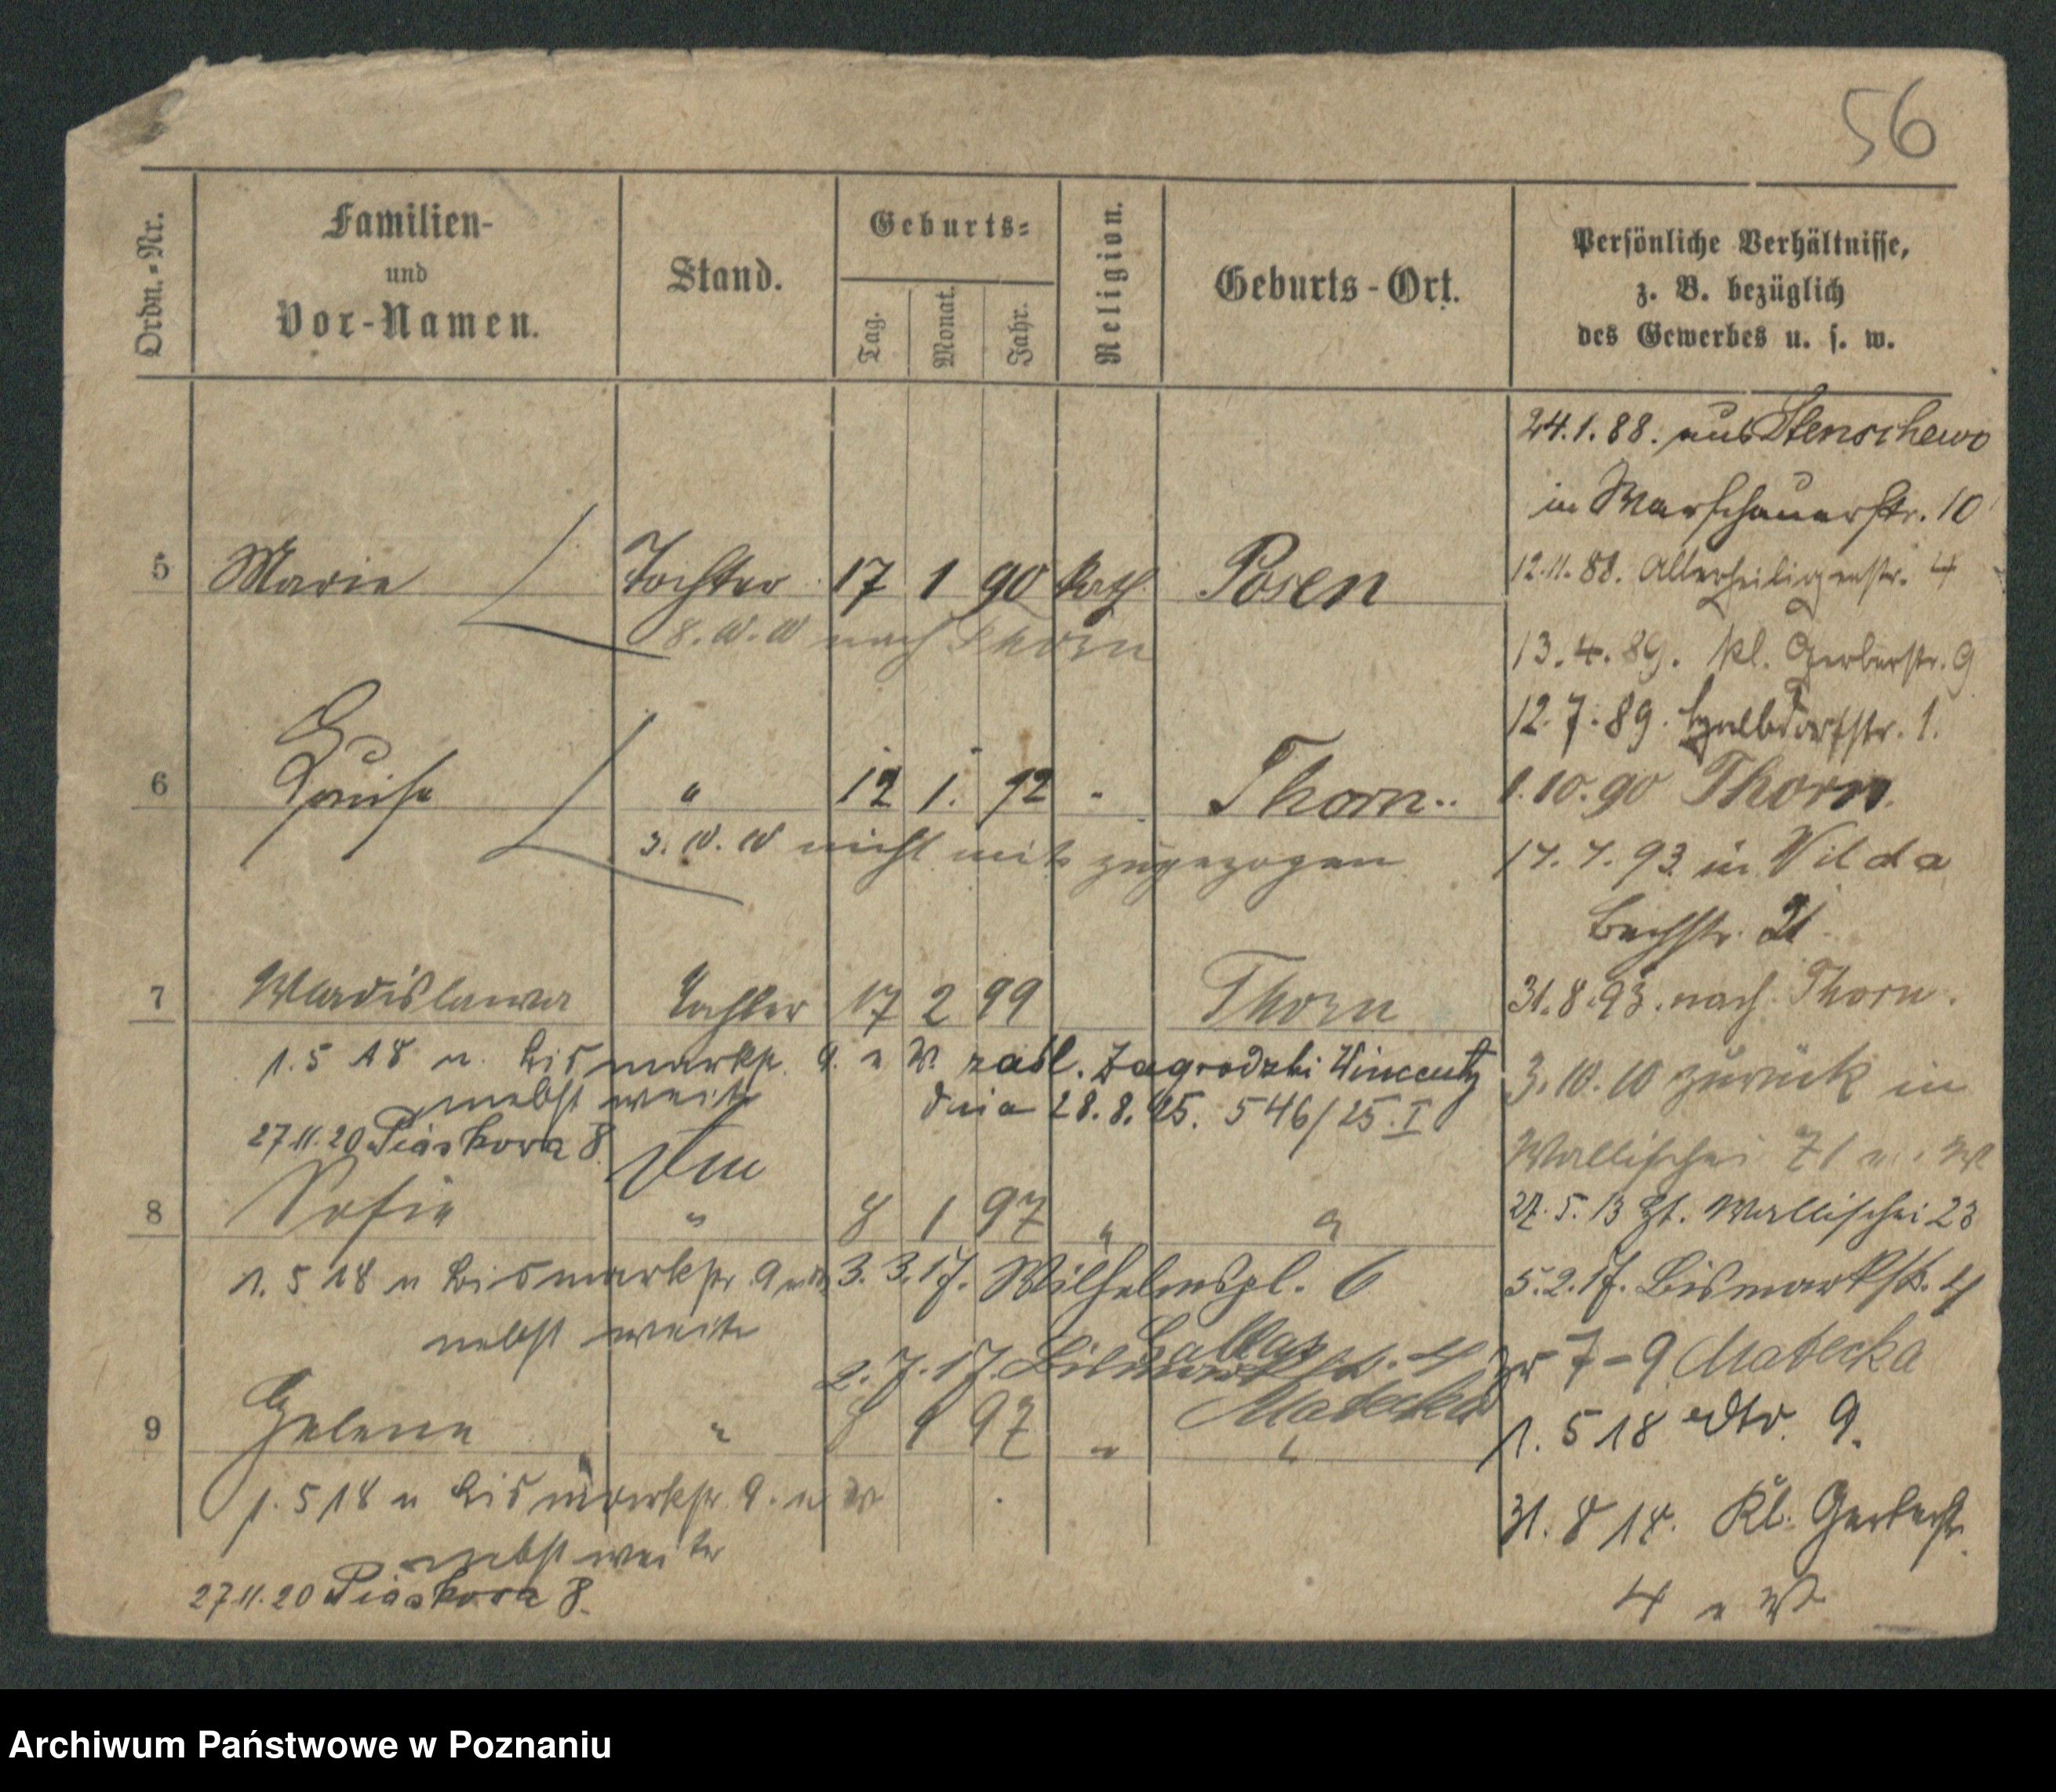 56
Ordn.-Nr.
Familien-
und
Vor-Namen.
Stand.
Geburts-
Tag.
Monat.
Jahr.
Religion.
Geburts-Ort.
Persönliche Verhältnisse,
z. B. bezüglich
des Gewerbes u. s. w.
24.1.88. aus Stenschewo
in Warschauerstr. 10
12.11.88. Allerheiligenstr. 4
13.4.89. Kl. Gerberstr. 9
12.7.89. Halbdorfstr. 1.
1.10.90 Thorn.
17.7.93 in Wilda
Bachstr. 21
31.8.93. nach Thorn.
3.10.10 zurück in
Wallischei 71
27.5.13 Wallischei 23
5.2.17. Bismarkstr. 4
7-9 Matecka
1.5 18 9.
31.8 18. Kl. Gerberstr.
4 u W
5 Marie Tochter 17 1 90 kath. Posen
nach Thorn
6 Louise " 12 1. 92 " Thorn
nicht mit zugezogen
7 Wladislawa Tochter 17 2 99 Thorn
1.5 18 u. Bismarkstr. 9. u W. zabl. Zagrodzki Wincenty
dnia 28.8.25. 546/25.I
27.11.20 Piaskowa 8.
8 Sofie " 8 1 97 " "
1.5 18 u Bismarkstr 9 3.3.17. Wilhelmspl. 6
2.7.17. Bismarkstr. 4
Matecka
9 Helene " 8 1 97 " "
1.5 18 u Bismarkstr 9. u W
27.11.20 Piaskowa 8.
Archiwum Państwowe w Poznaniu